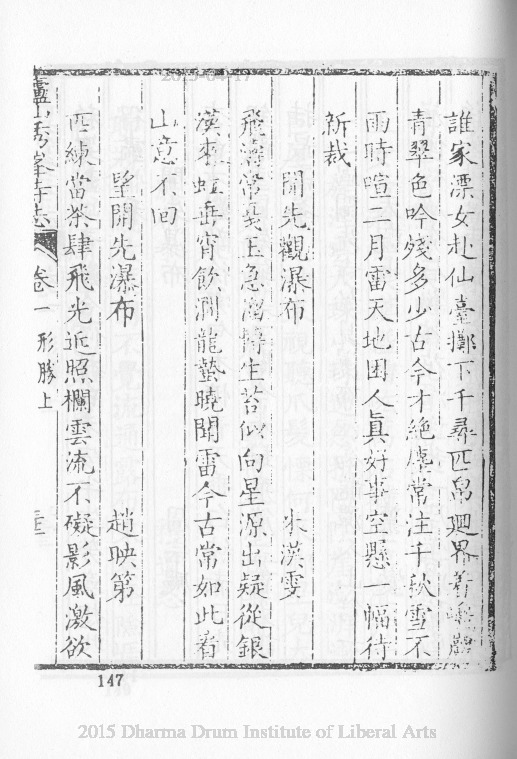 誰家漂女赴仙臺擲下千尋匹帛廻界着
青翠色吟殘多少古今才絶壑常注千秋雪不
雨時喧二月雷天地困人真好事空懸一幅待
新裁
開先觀瀑布 朱漢雯
飛濤常戞玉急溜轉生苔似向星源出疑從銀
漢來虹垂宵飲澗龍蟄曉聞雷今古常如此看
山意不回
望開先瀑布 趙映第
匹練當茶肆飛光近照欄雲流不礙影風激欲
廬山秀峯寺志 卷一 形勝上
147
2015 Dharma Drum Institute of Liberal Arts